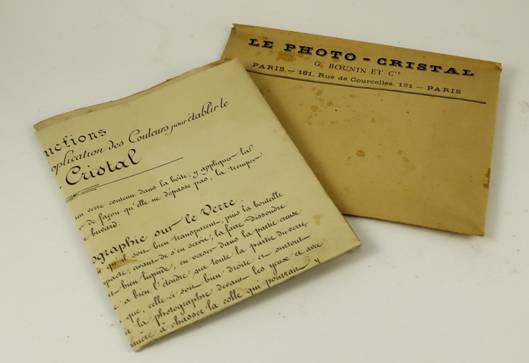 LE PHOTO-CRISTAL
G. BOUNIN ET Cie
PARIS. — 181, Rue de Courcelles, 181 — PARIS
uctions
plication des Couleurs pour établir le
Cristal
un verre contenu dans la boîte; y appliquer la
de façon qu'elle ne dépasse pas, la tremper
buvard.
ographie sur le Verre.
qu'il soit bien transparent, puis la bouteille
avant de s'en servir, la faire dissoudre
bien liquide, en verser dans la partie creuse
a bien l'étendre sur toute la partie du verre,
que, celle-ci soit bien droite et surtout
la photographie devant les yeux et avec
à chasser la colle qui pourrait y